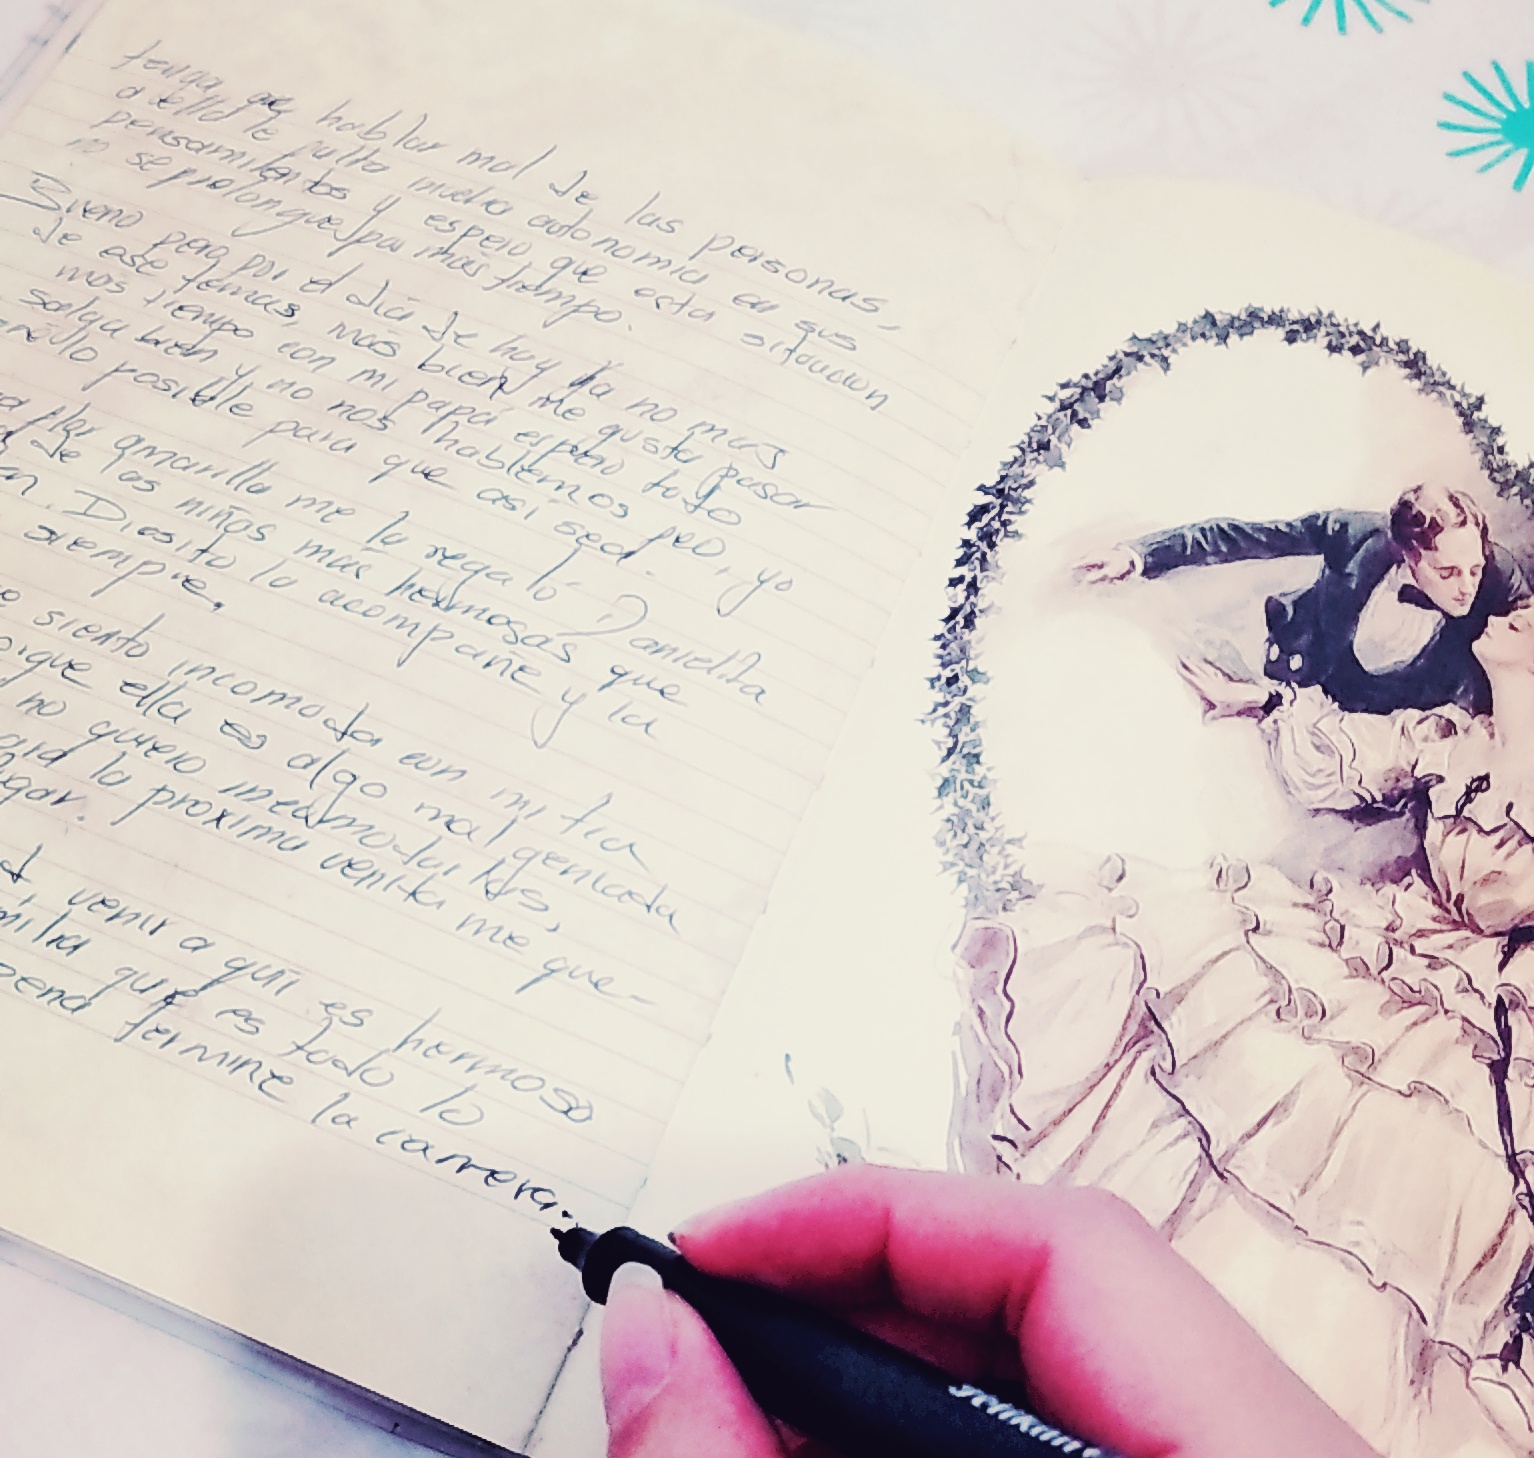 tenga que hablar mal de las personas,
a ella le falta mucha autonomia en sus
pensamientos y espero que esta situacion
no se prolongue por más tiempo.
Bueno pero por el día de hoy ya no mas
de ese temas, más bien me gusta pasar
más tiempo con mi papá espero todo
salga bien y no nos hablemos feo, yo
lo posible para que así sea.
flor amarilla me la regaló Danielita
de las niñas más hermosas que
Diosito la acompañe y la
siempre.
siento incomoda con mi tia
ella es algo mal geniada
no quiero incomodarlos,
la proxima venita me que-
venir a qui es hermoso
que es todo lo
pena termine la carrera.